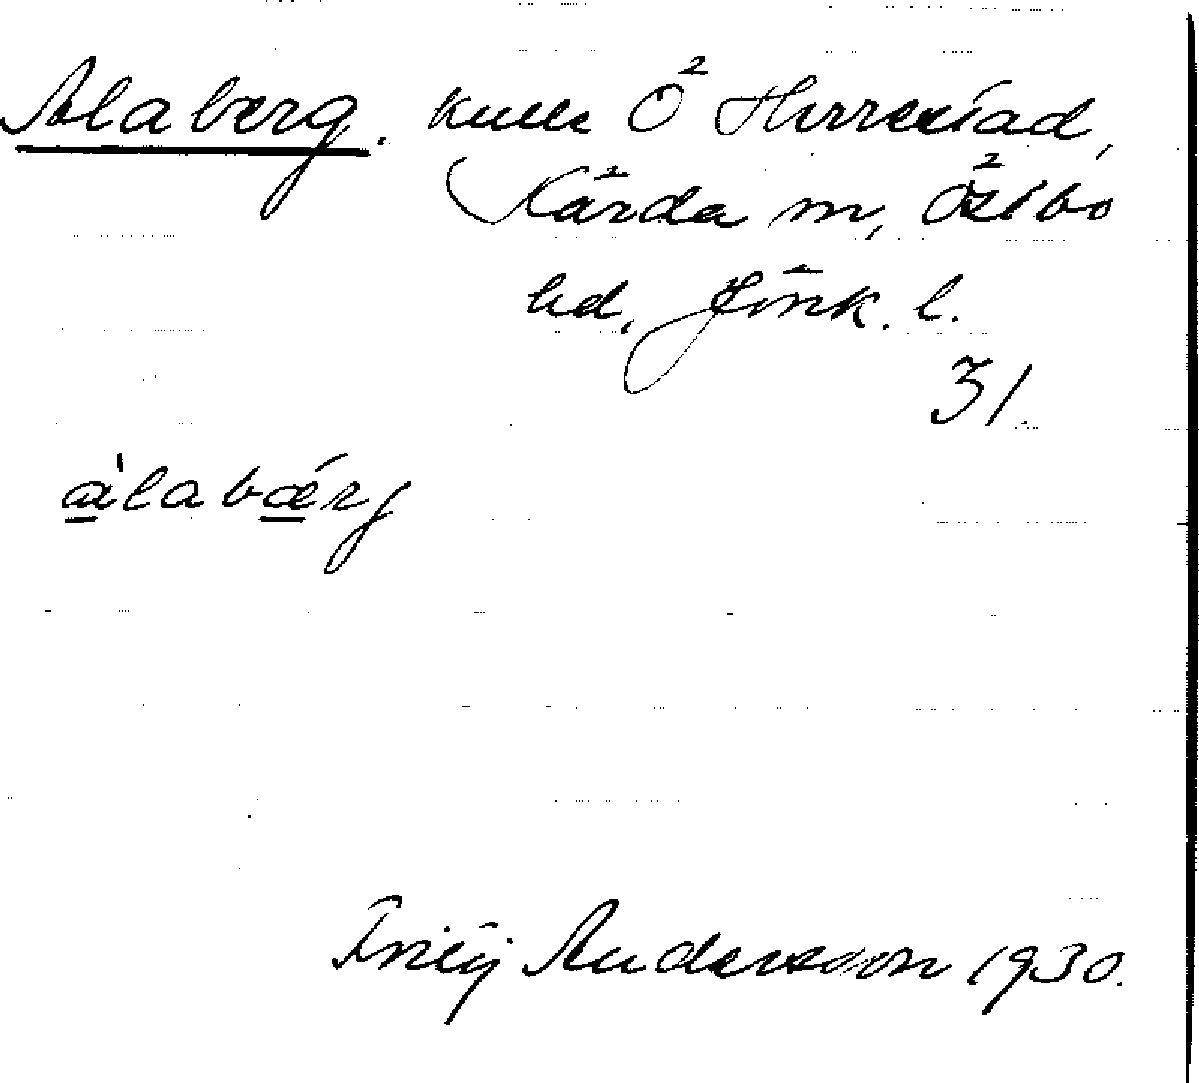 Alaberg. kulle Ö Herrestad,
Kärda sn, Östbo
hd, Jönk. l.
31.
àlabærj
Andersson 1930.